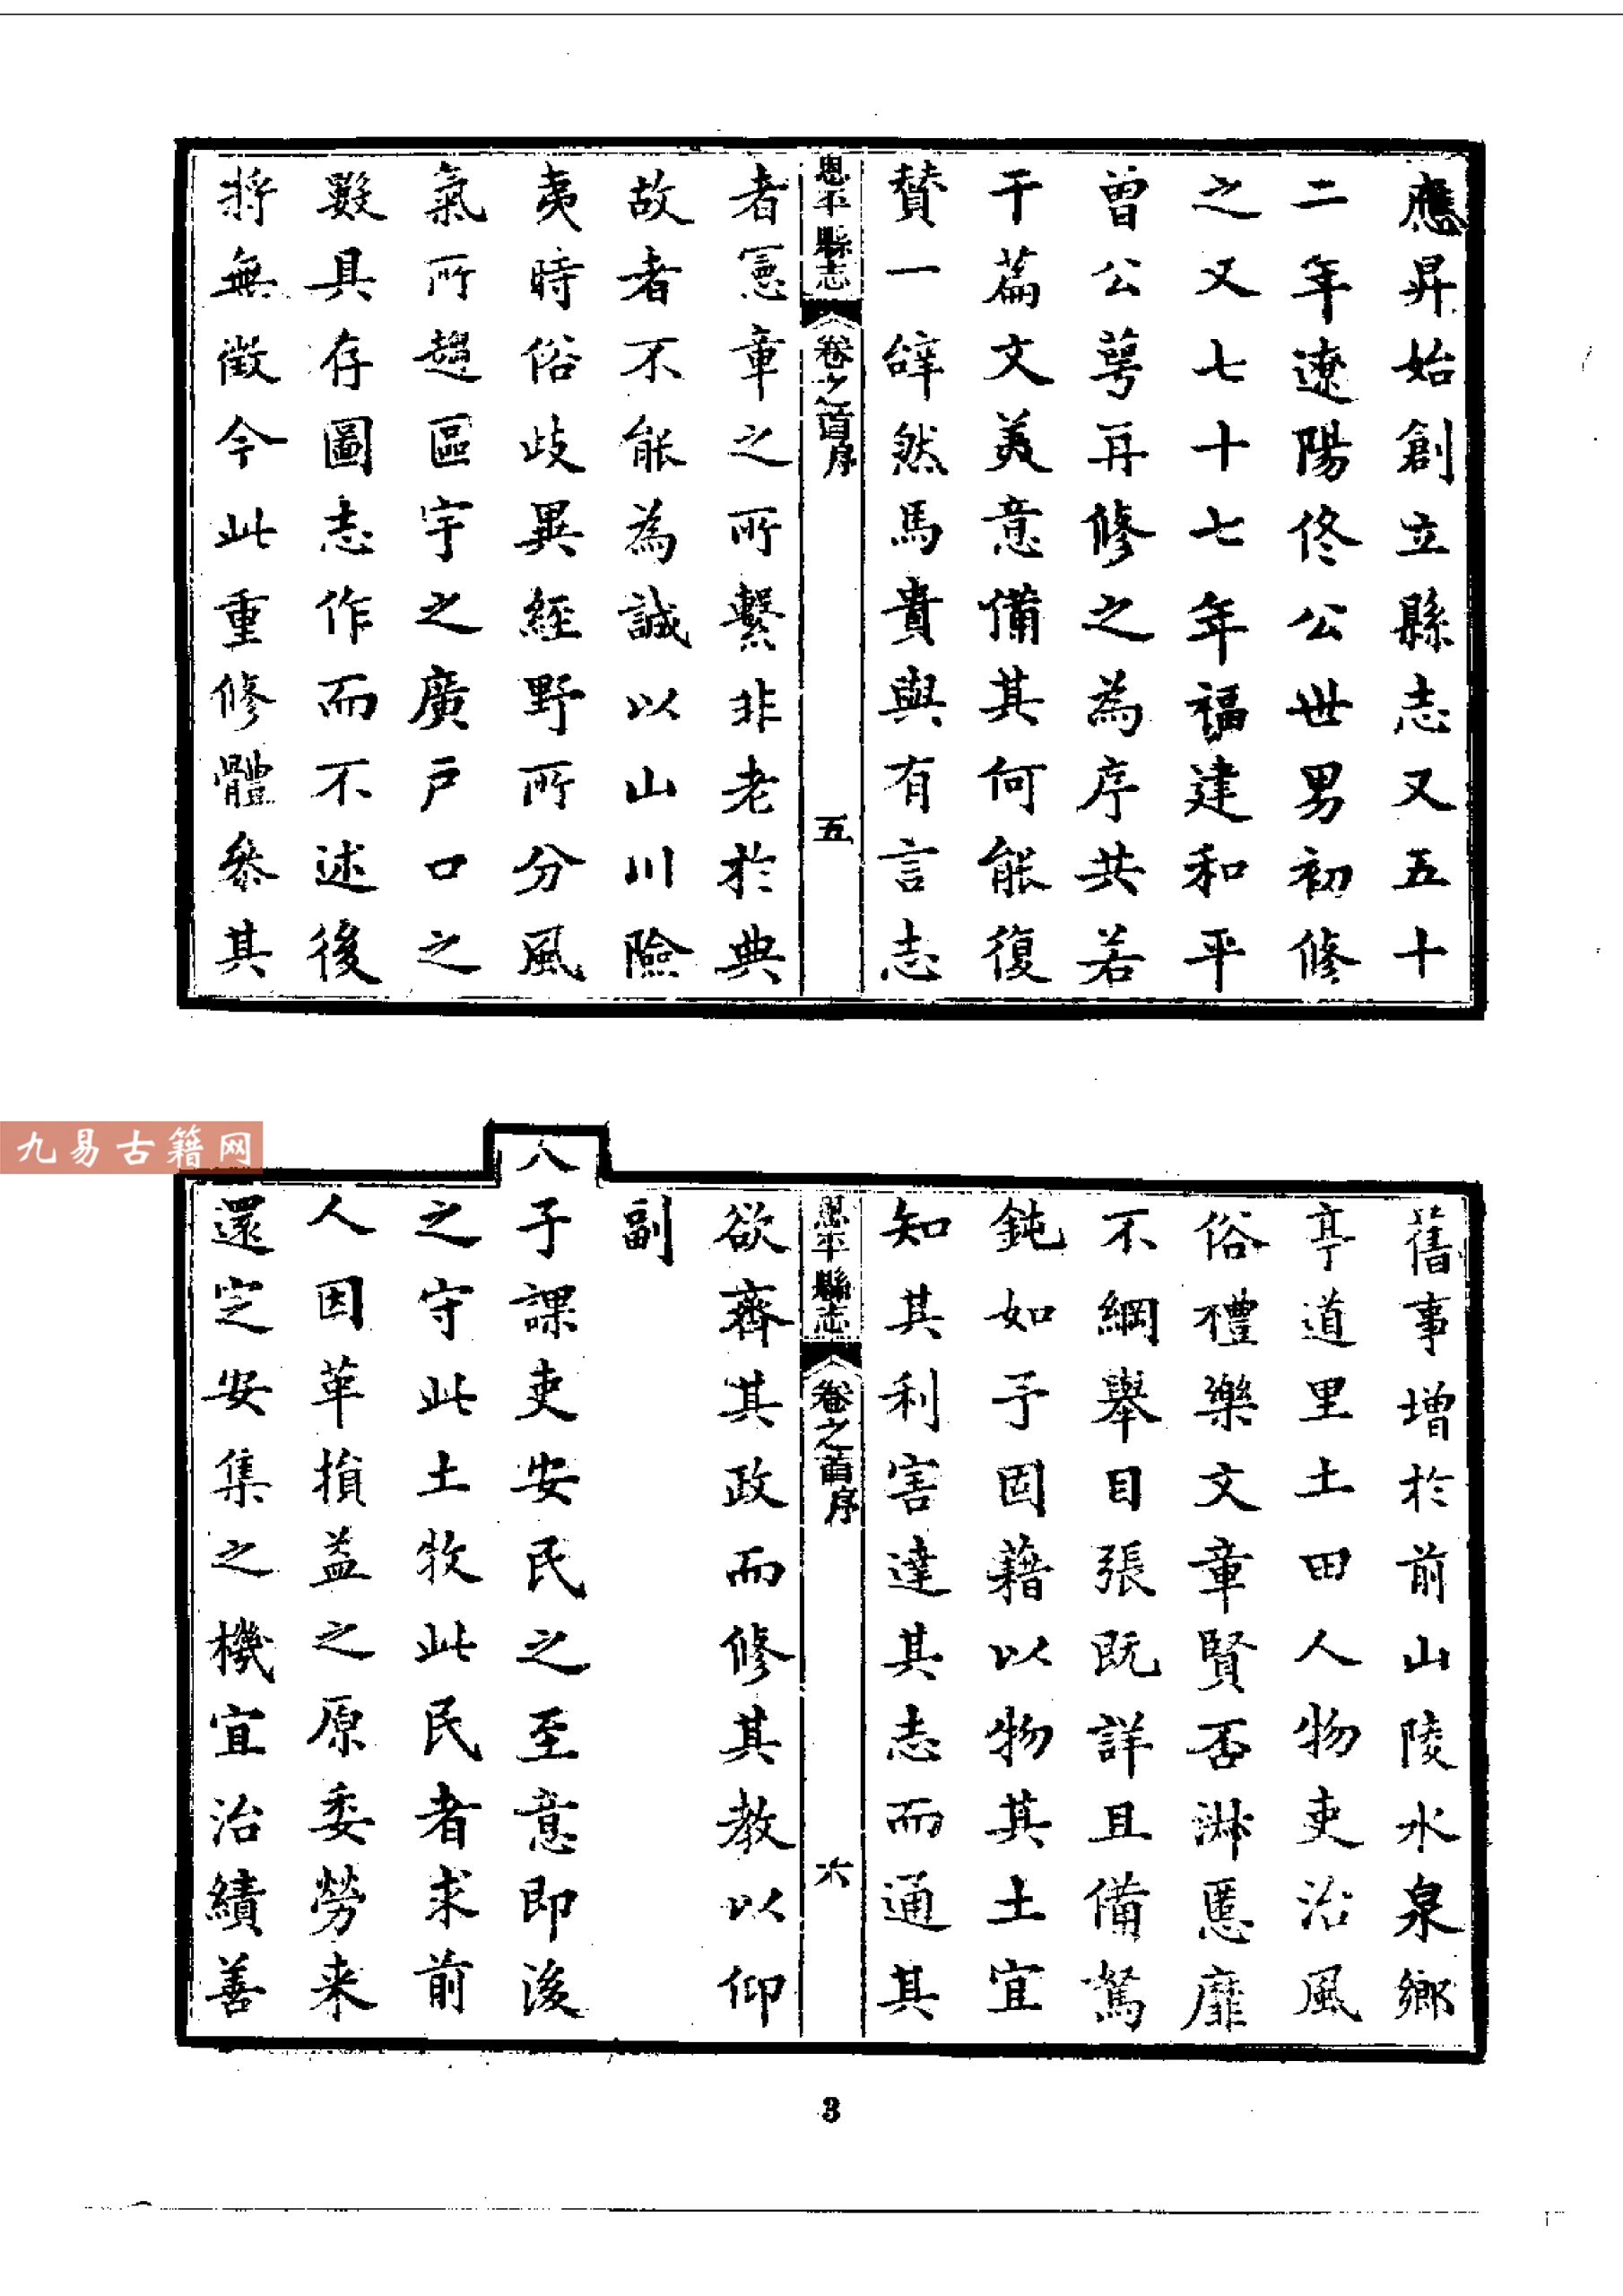 應昇始創立縣志又五十
二年遼陽佟公世男初修
之又七十七年福建和平
曾公萼再修之為序共若
干篇文美意備其何能復
贊一辭然馬貴與有言志
恩平縣志 卷之首序 五
者憲章之所繫非老於典
故者不能為誠以山川險
夷時俗歧異經野所分風
氣所趨區宇之廣戶口之
數具存圖志作而不述後
將無徵今此重修體參其
舊事增於前山陵水泉鄉
亭道里土田人物吏治風
俗禮樂文章賢否淑慝靡
不綱舉目張既詳且備駑
鈍如予因藉以物其土宜
知其利害達其志而通其
恩平縣志 卷之首序 六
欲齊其政而修其教以仰
副
天子課吏安民之至意即後
之守此土牧此民者求前
人因革損益之原委勞来
還定安集之機宜治績善
3
九易古籍网